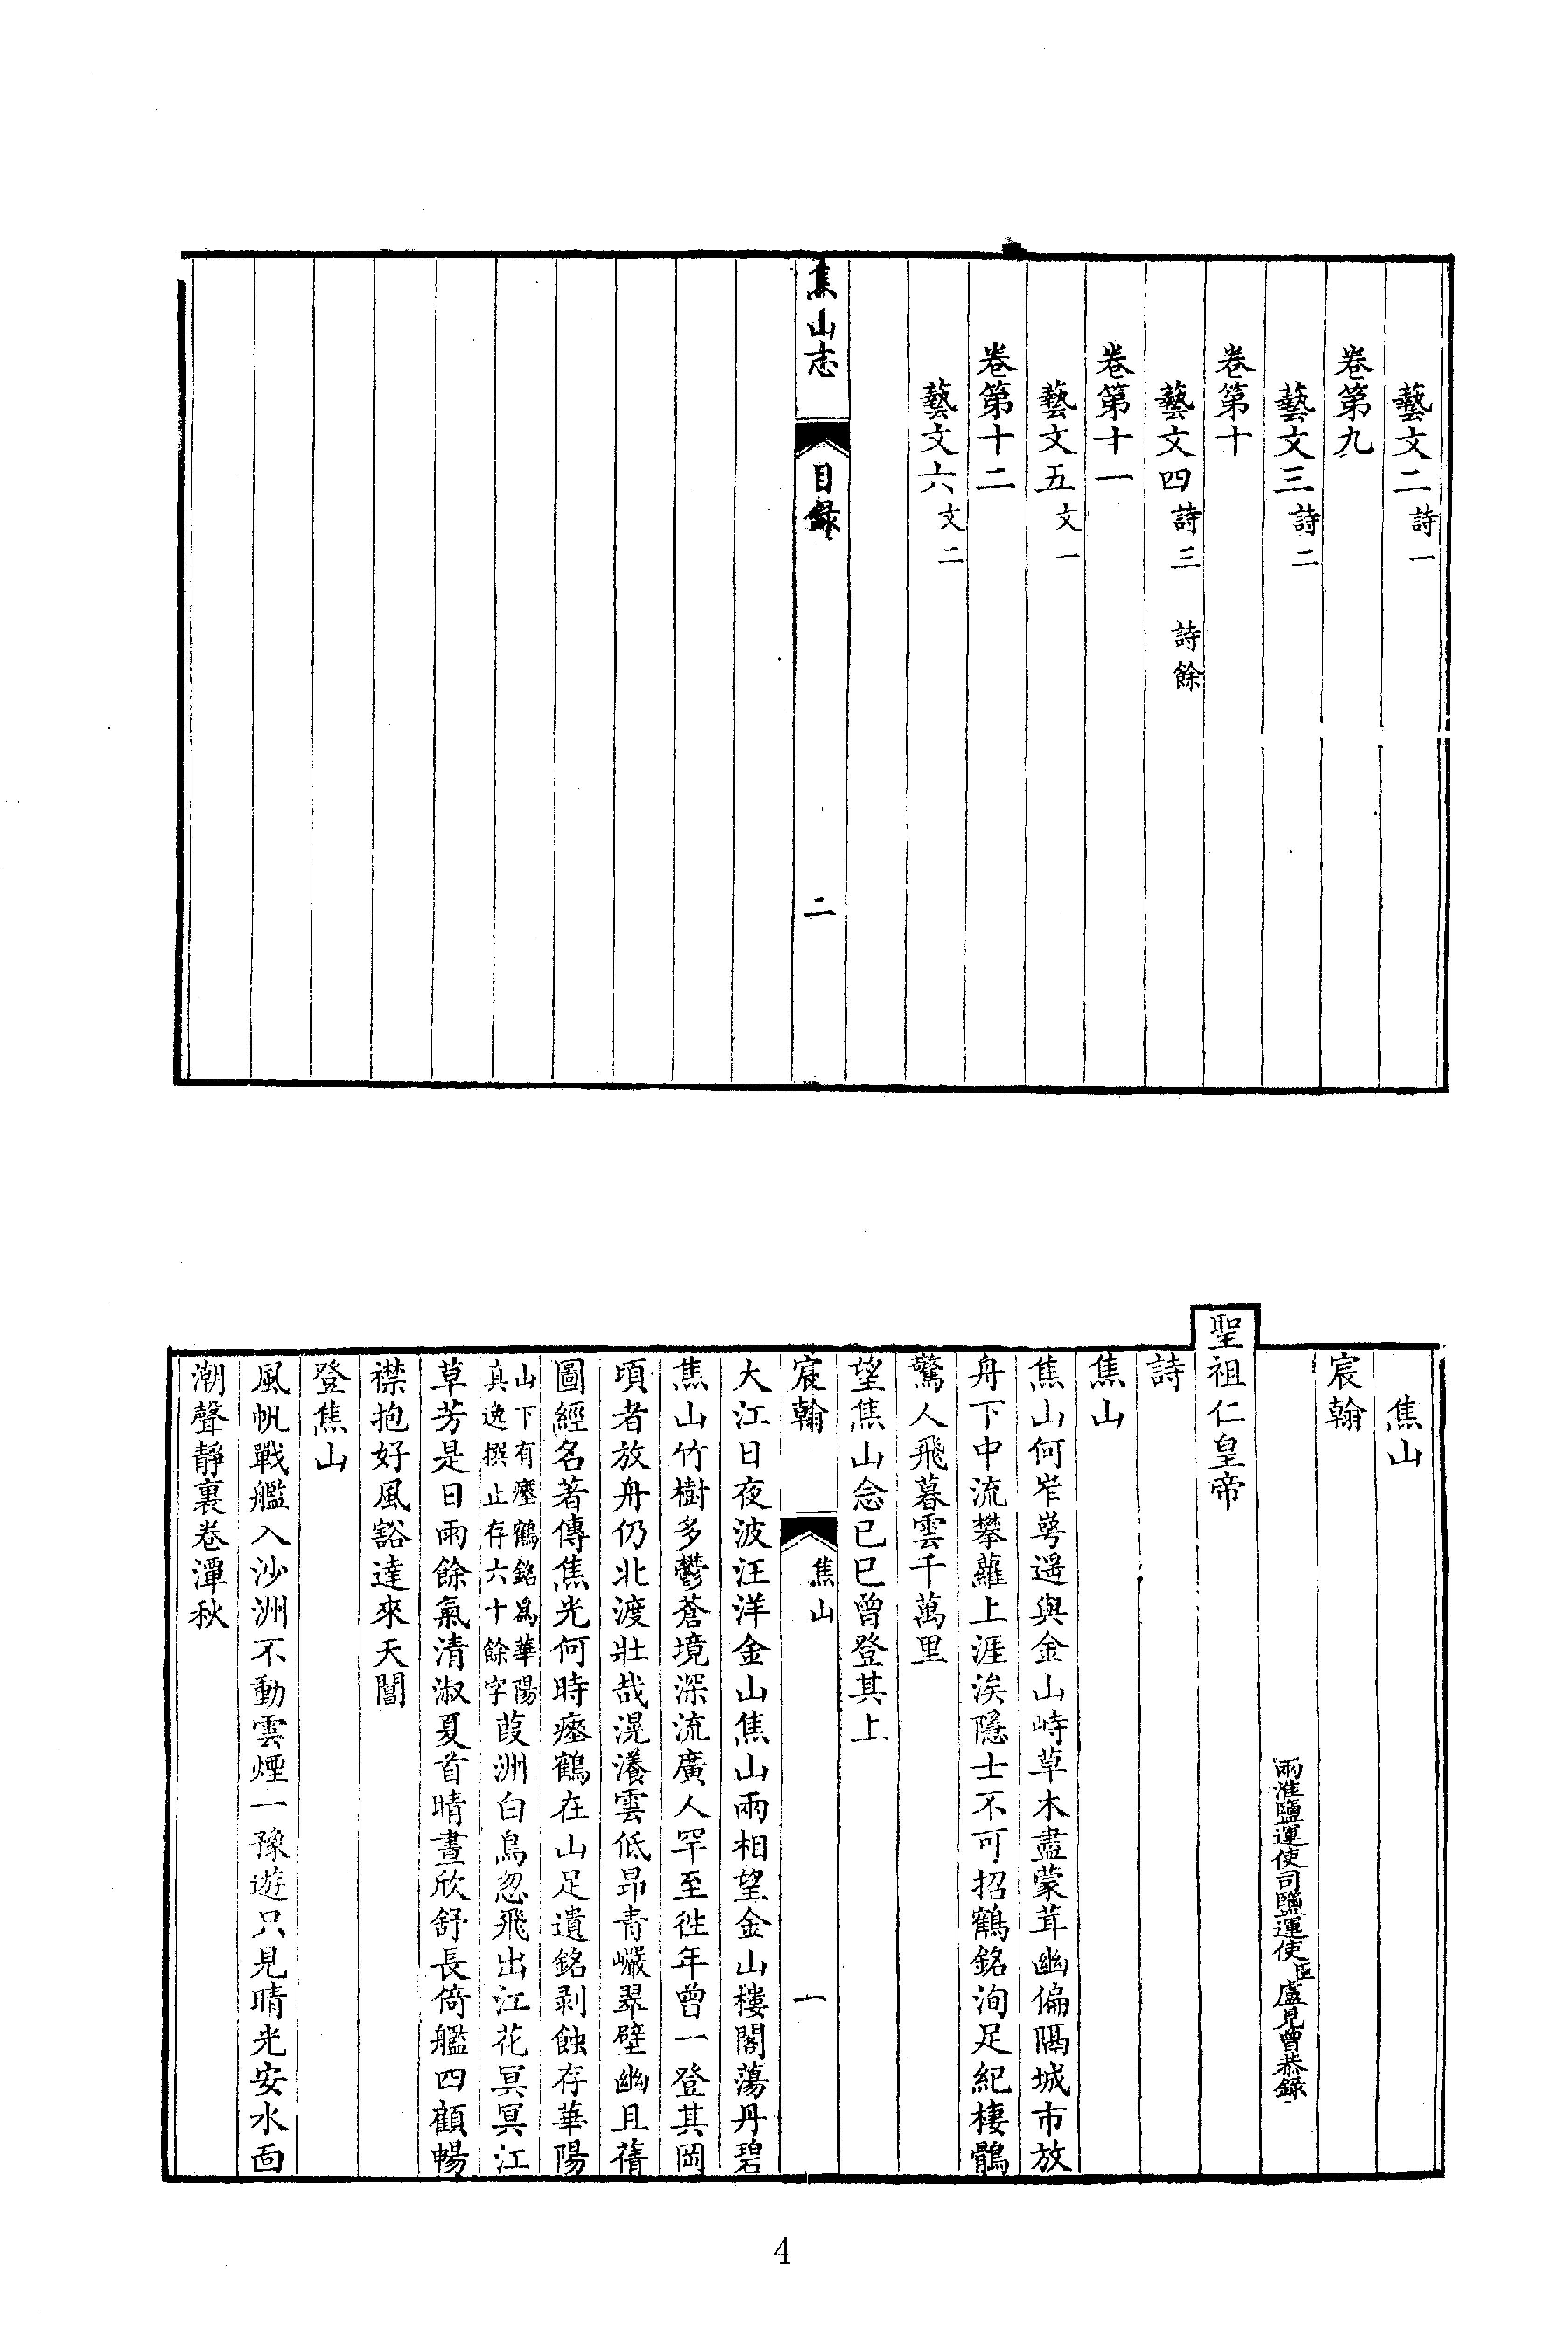 藝文二 詩一
卷第九
藝文三 詩二
卷第十
藝文四 詩三 詩餘
卷第十一
藝文五 文一
卷第十二
藝文六 文二
焦山志 目錄 二
焦山
宸翰
兩淮鹽運使司鹽運使臣盧見曾恭錄
聖祖仁皇帝
詩
焦山
焦山何岝崿遥與金山峙草木盡蒙茸幽偏隔城市放
舟下中流攀蘿上涯涘隱士不可招鶴銘洵足紀棲鶻
驚人飛暮雲千萬里
望焦山念己巳曾登其上
宸翰 焦山 一
大江日夜波汪洋金山焦山兩相望金山樓閣蕩丹碧
焦山竹樹多鬱蒼境深流廣人罕至往年曾一登其岡
頃者放舟仍北渡壯哉滉瀁雲低昻青巘翠壁幽且蒨
圖經名著傳焦光何時瘞鶴在山足遺銘剥蝕存華陽
山下有瘞鶴銘爲華陽
真逸撰止存六十餘字
葭洲白鳥忽飛出江花冥冥江
草芳是日雨餘氣清淑夏首晴晝欣舒長倚艦四顧暢
襟抱好風豁達來天閶
登焦山
風帆戰艦入沙洲不動雲煙一豫遊只見晴光安水面
潮聲靜裏卷潭秋
4